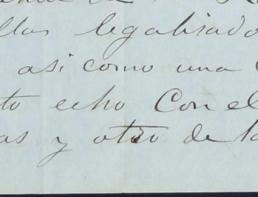 llas legalizado
asi como una
to echo Con el
as y otro de la